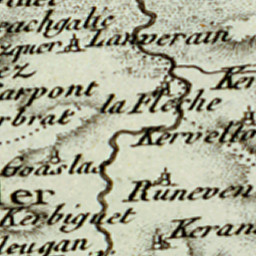 eachgalic
zquer Lanverain
ez
arpont la Fleche Ker
rbrat Kervello
Goaslas
Runeven
er
Kerbiguet Keran
leugan